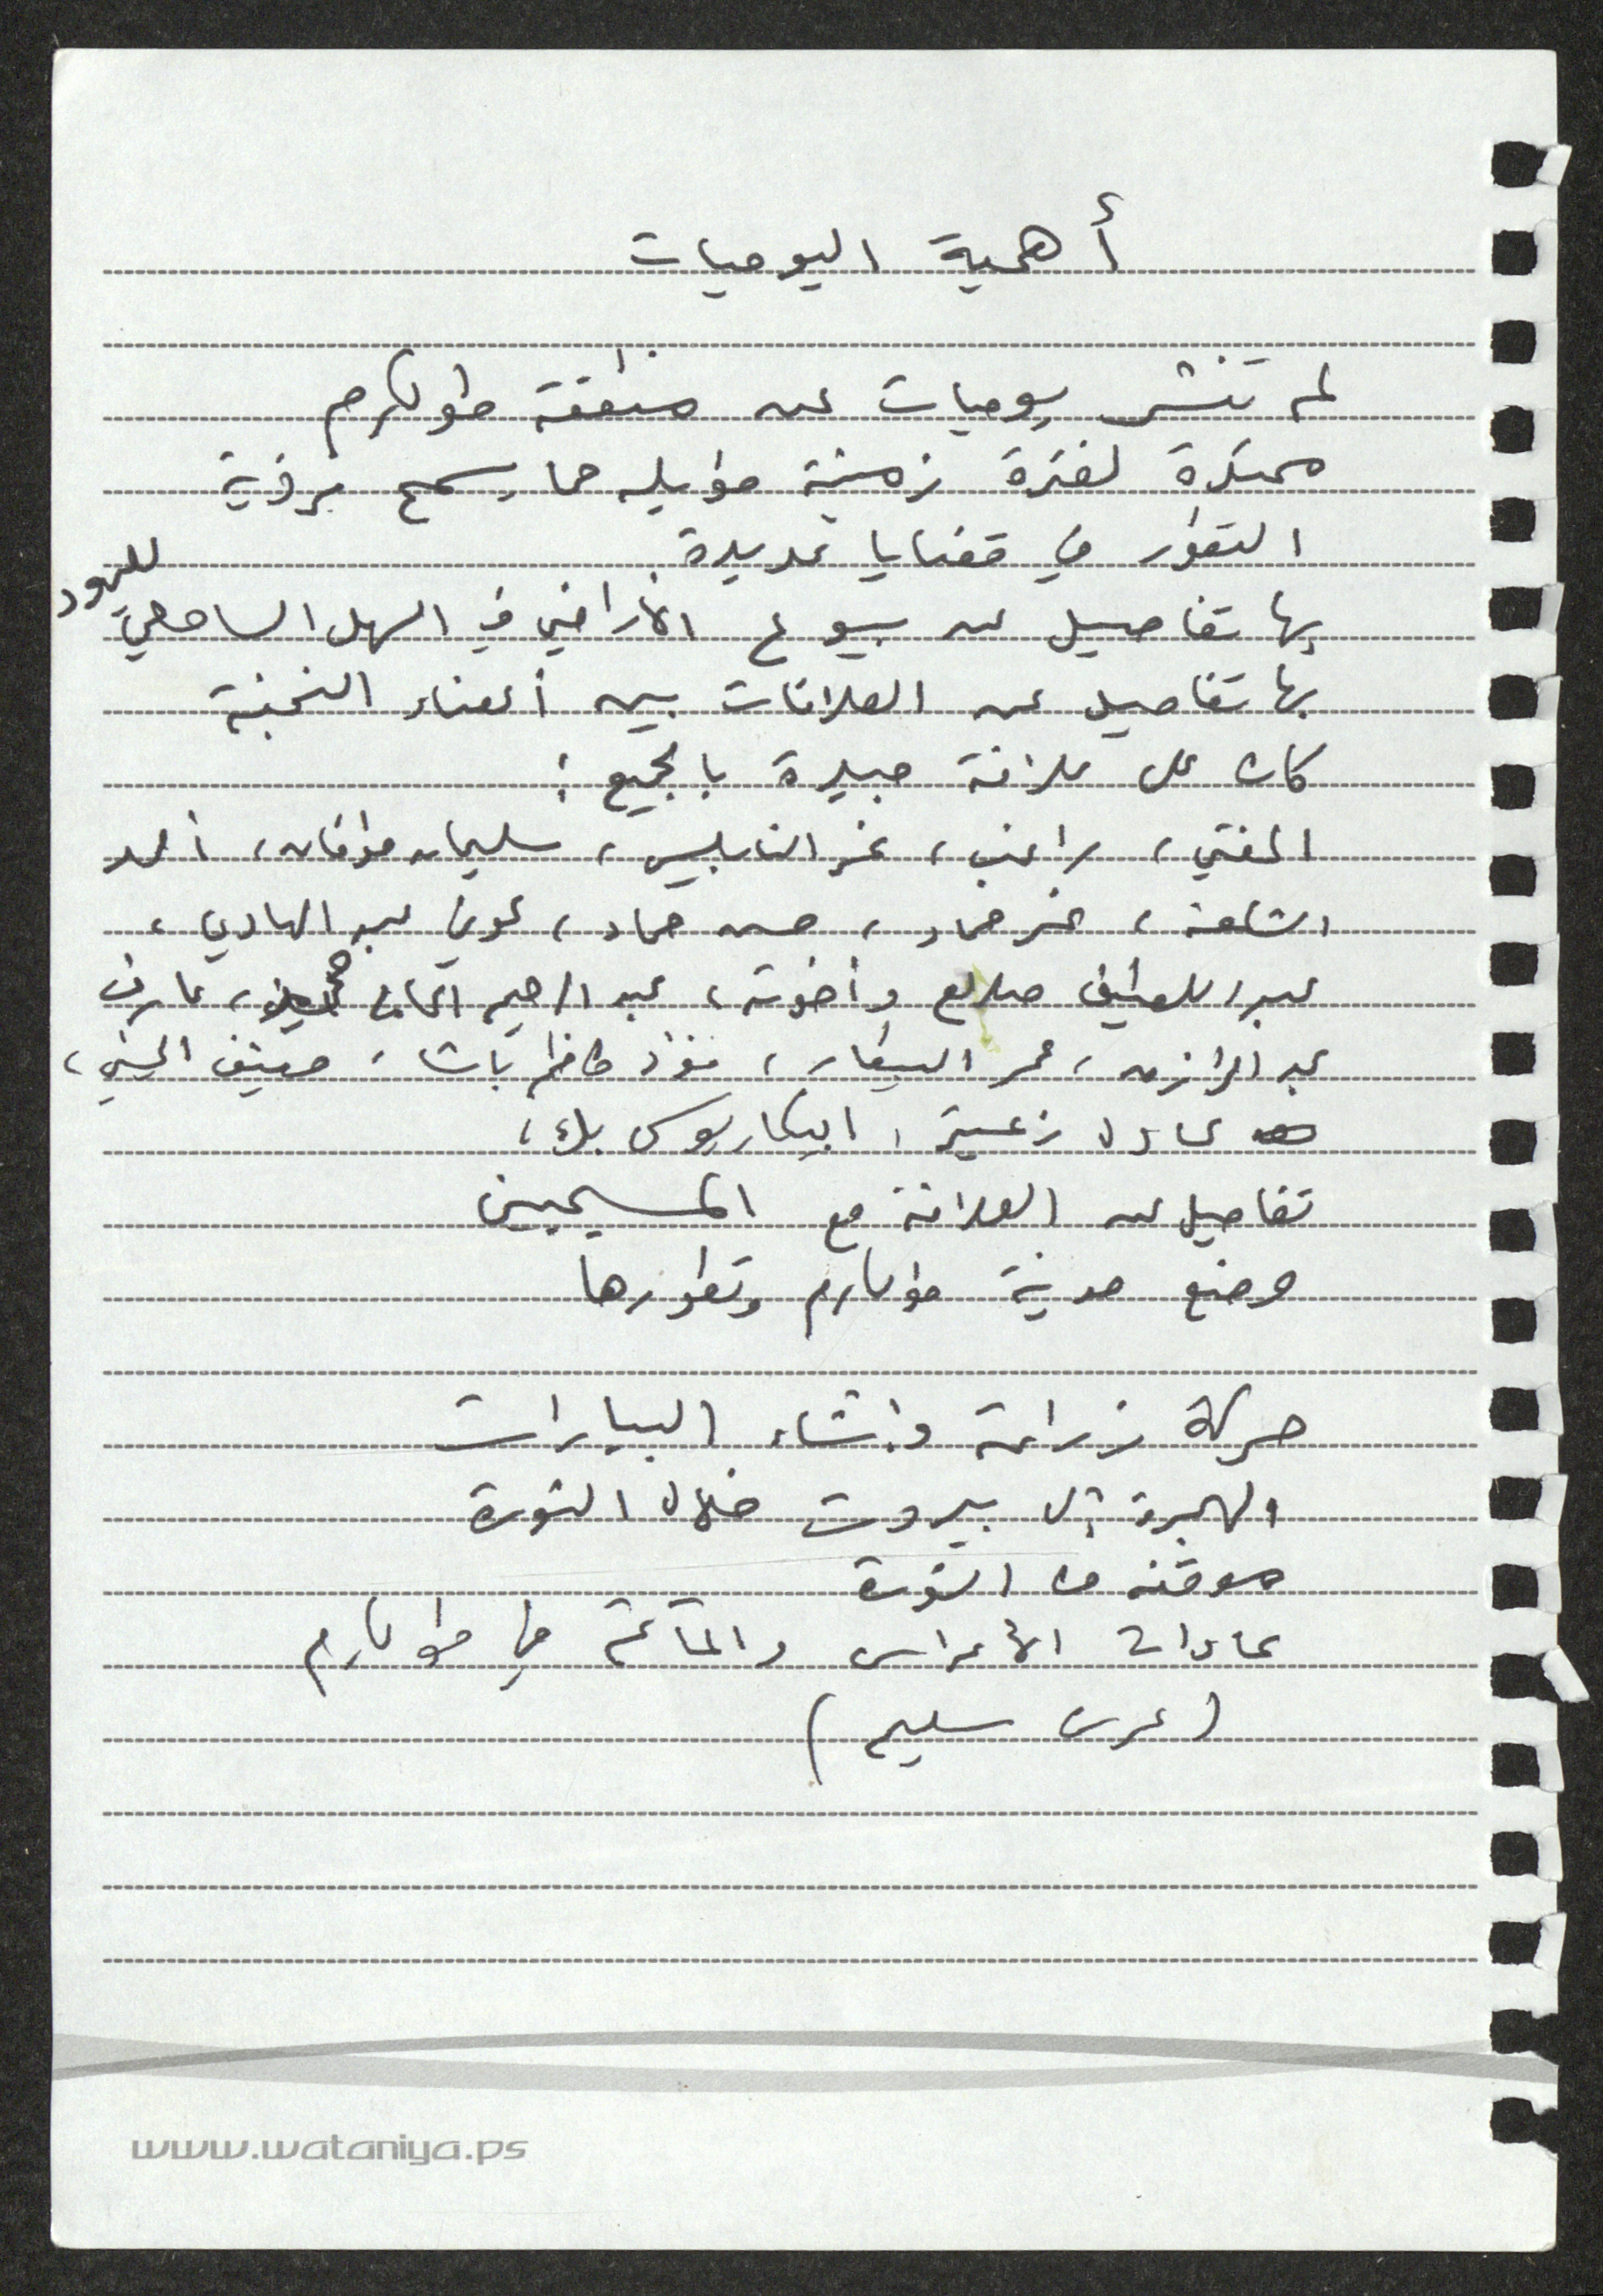 أهمية اليوميات
لم تنشر يوميات عن منطقة طولكرم
ممتدة لفترة زمنية طويله مما يسمح برؤية
التطور في قضايا عديدة
بها تفاصيل عن بيوع الأراضي في السهل الساحلي لليهود
بها تفاصيل عن العلاقات بين أعضاء النخبة
كان على علاقة جيدة بالجميع :
المفتي، راغب، نمر النابلسي، سليمان طوقان، أحمد
الشكعة، نمر حماد، حسن حماد، عوني عبد الهادي،
عبد اللطيف صلاح وأخوته، عبد الرحيم الحاج محمد، عارف
عبد الرازق، عمر البيطار، فؤاد كاظم باشا، منيف الحسيني،
عادل زعيتر، ابيكاريوس بك،
تفاصيل عن العلاقة مع المسيحيين
وضع مدينة طولكرم وتطورها
حركة زراعة وإنشاء البيارات
الهجرة إلى بيروت خلال الثورة
موقفه من الثورة
عادات الأعراس والمآتم في طولكرم
(عرس سليم)
www.wataniya.ps